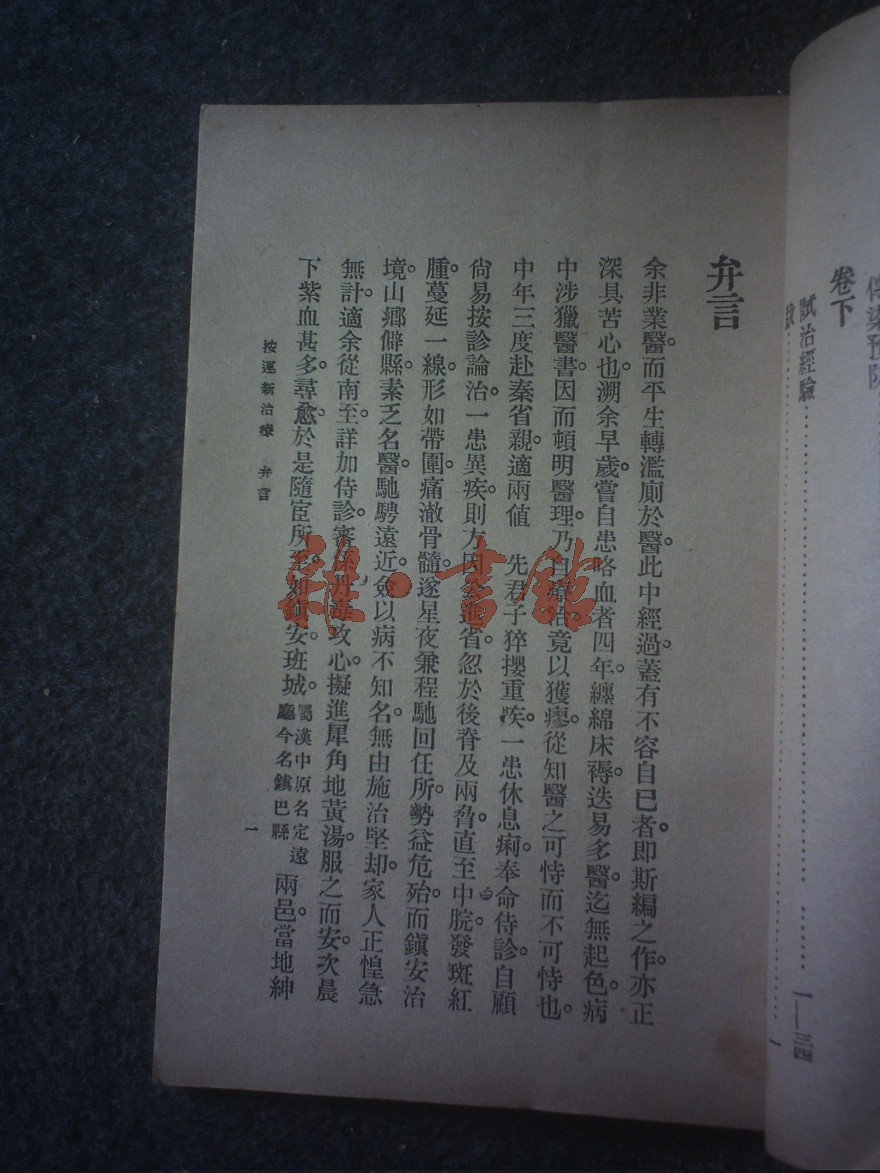 卷下
試治經驗………………………一—三四
弁言
余非業醫。而平生轉濫廁於醫。此中經過。蓋有不容自已者。即斯編之作。亦正
深具苦心也。溯余早歲。嘗自患咯血者四年。纏綿床褥。迭易多醫。迄無起色。病
中涉獵醫書。因而頓明醫理。乃自療治。竟以獲瘳。從知醫之可恃而不可恃也。
中年三度赴秦省親。適兩值 先君子猝攖重疾。一患休息痢。奉命侍診。自顧
尙易按診論治。一患異疾。則方因公進省。忽於後脊及兩脅。直至中脘。發斑紅
腫。蔓延一線。形如帶圍。痛澈骨髓。遂星夜兼程馳回任所。勢益危殆。而鎭安治
境。山鄉僻縣。素乏名醫。馳騁遠近。僉以病不知名。無由施治堅却。家人正惶急
無計。適余從南至。詳加侍診。審係丹毒攻心。擬進犀角地黃湯。服之而安。次晨
下紫血甚多。尋愈。於是隨宦所至。如鎭安。班城。屬漢中原名定遠廳今名鎭巴縣兩邑。當地紳
按運新治療 弁言
一
雜·書館